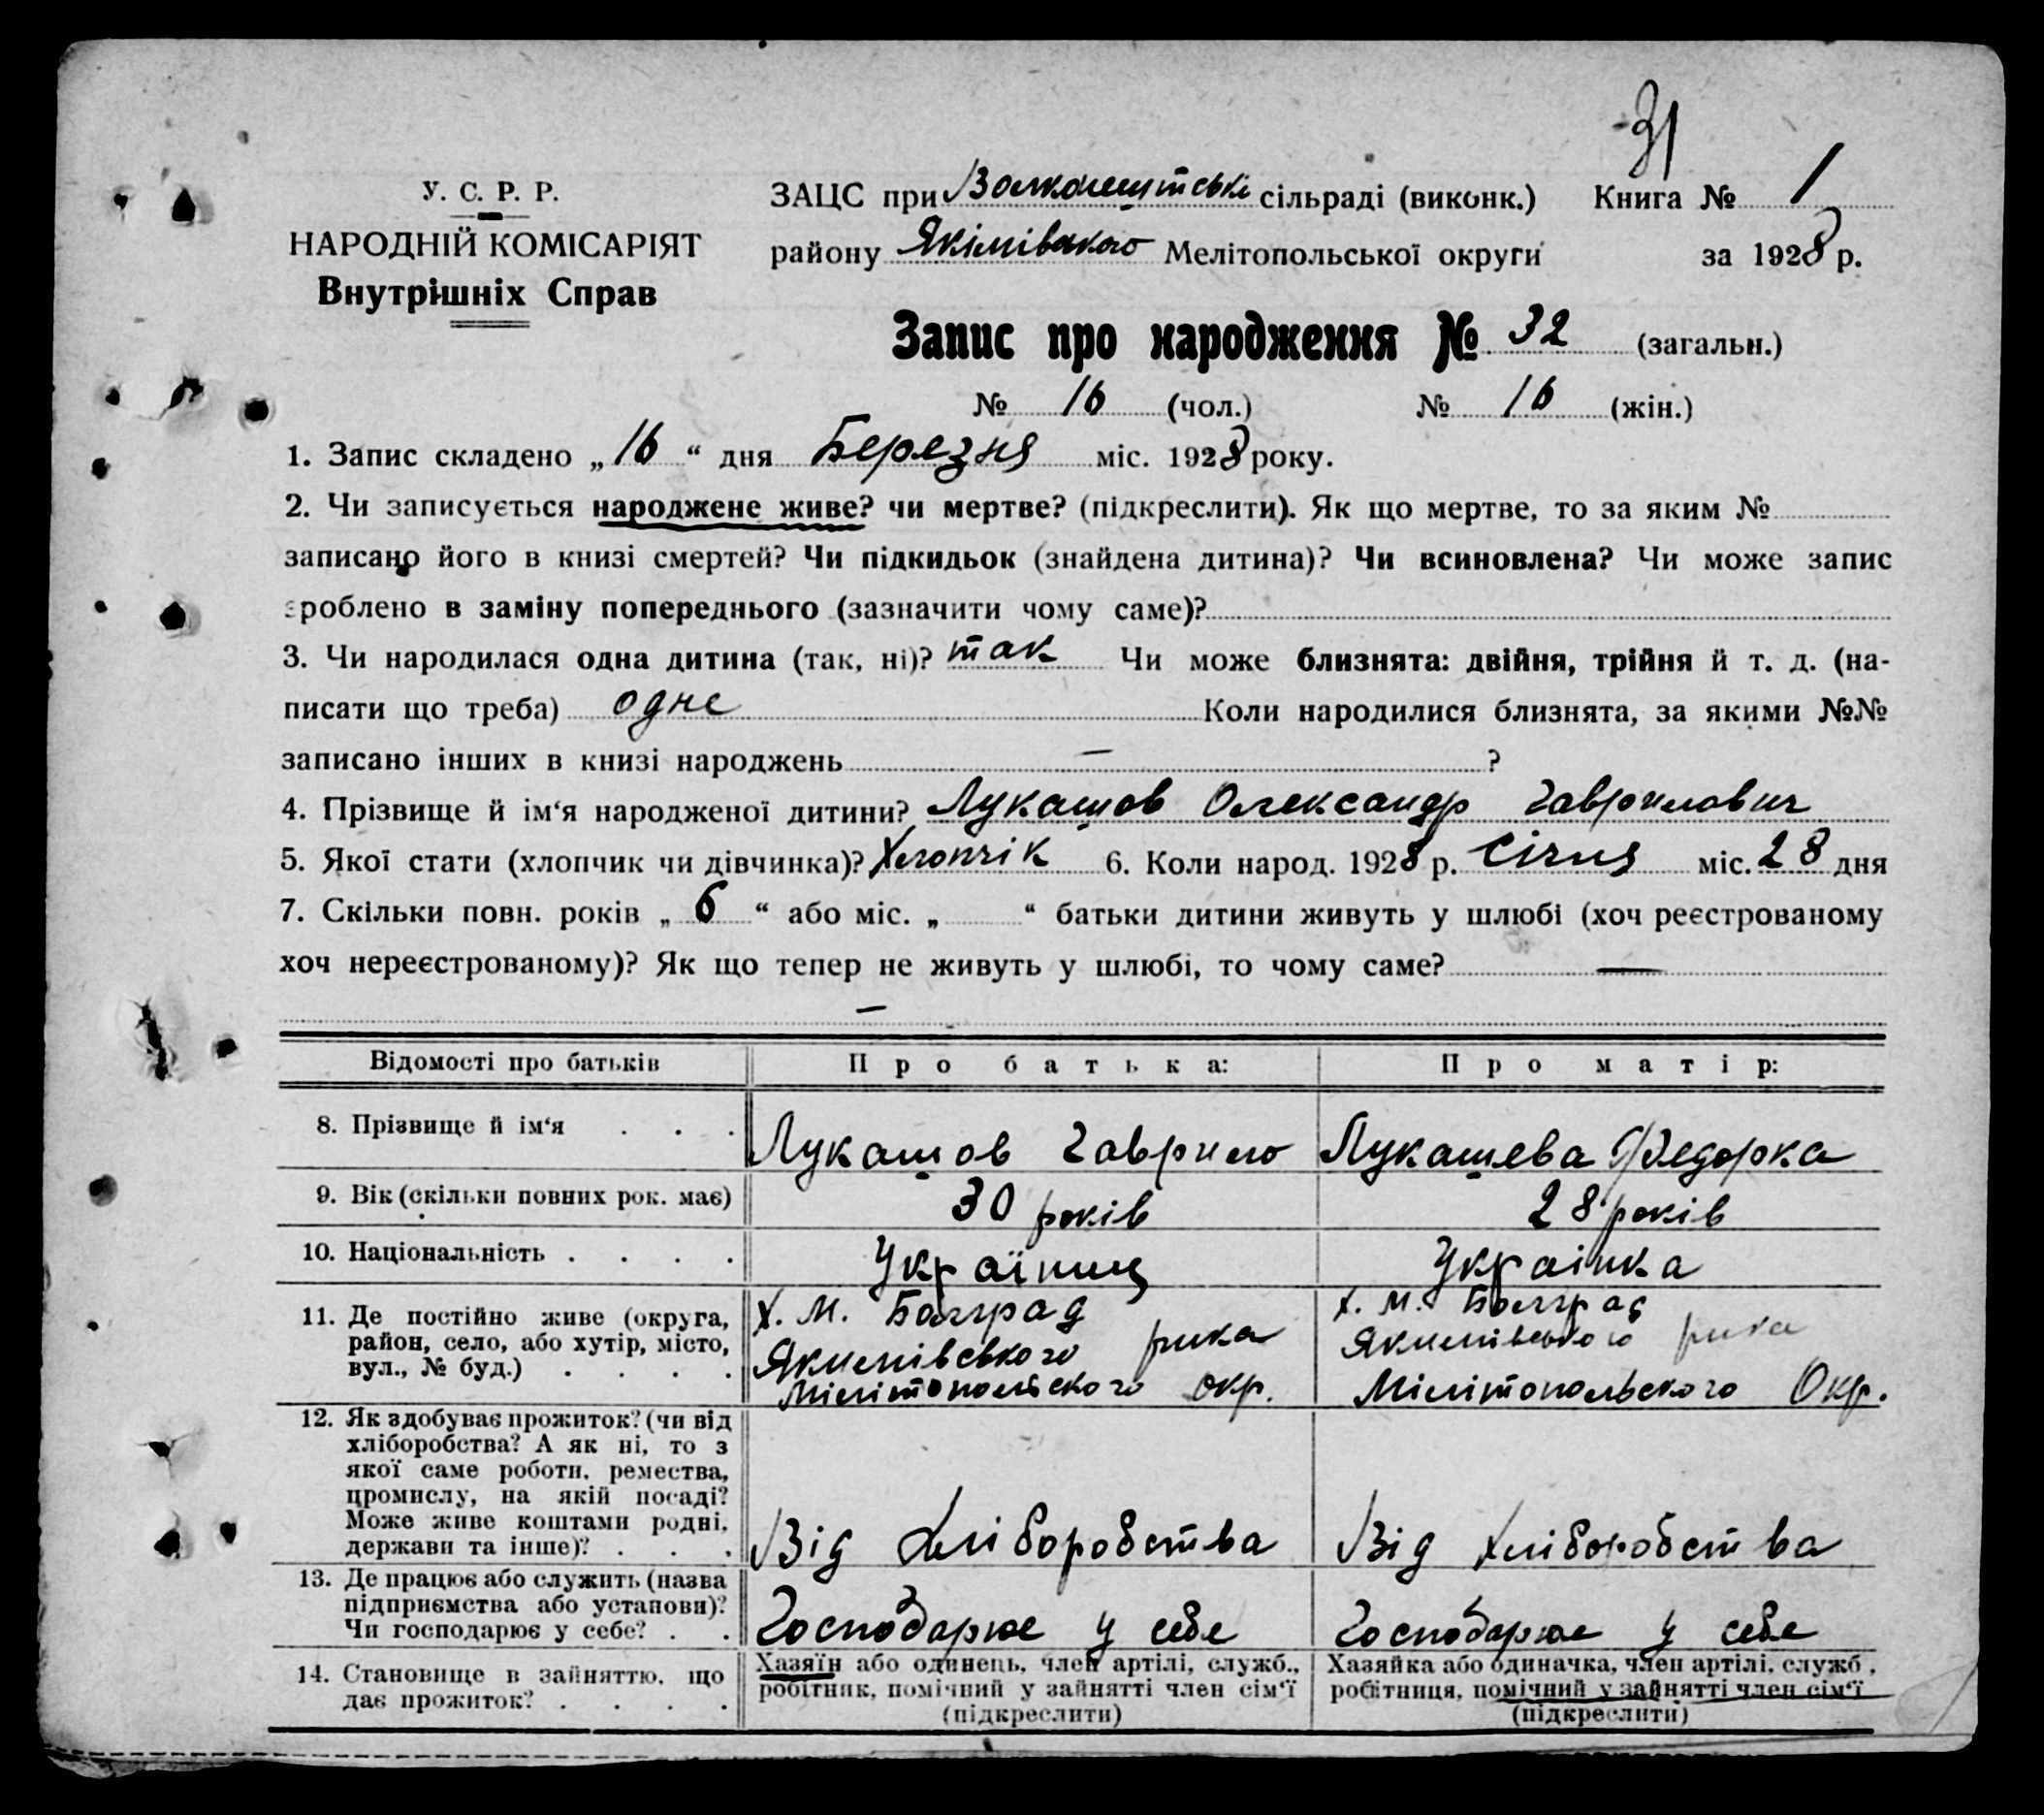 31
У. С. Р. Р.
НАРОДНІЙ КОМІСАРІЯТ
Внутрішніх Справ
ЗАЦС при Волконештські сільраді (виконк.) Книга № 1
району Якімівского Мелітопольської округи за 1928 р.
Запис про народження № 32 (загальн.)
№ 16 (чол.) № 16 (жін.)
1. Запис складено „16“ дня Березня міс. 1928 року.
2. Чи записується народжене живе? чи мертве? (підкреслити). Як що мертве, то за яким №
записано його в книзі смертей? Чи підкидьок (знайдена дитина)? Чи всиновлена? Чи може запис
зроблено в заміну попереднього (зазначити чому саме)?
3. Чи народилася одна дитина (так, ні)? так Чи може близнята: двійня, трійня й т. д. (на-
писати що треба) одне Коли народилися близнята, за якими №№
записано інших в книзі народжень — ?
4. Прізвище й ім‘я народженої дитини? Лукашов Олександр Гаврилович
5. Якої стати (хлопчик чи дівчинка)? Хлопчік 6. Коли народ. 1928 р. Січня міс. 28 дня
7. Скільки повн. років „6“ або міс. „ “ батьки дитини живуть у шлюбі (хоч реєстрованому
хоч нереєстрованому)? Як що тепер не живуть у шлюбі, то чому саме? —
—
Відомості про батьків Про батька: Про матір:
8. Прізвище й ім‘я . . . Лукашов Гаврило Лукашева Федорка
9. Вік (скільки повних рок. має) 30 років 28 років
10. Національність . . . . Українец Украінка
11. Де постійно живе (округа,
район, село, або хутір, місто,
вул., № буд.) . . . .
Х. М. Болград
Якимівського рика
Мілітопольского окр.
х. м. Болград
Якимівського рика
Мілітопольского Окр.
12. Як здобуває прожиток? (чи від
хліборобства? А як ні, то з
якої саме роботи, ремества,
промислу, на якій посаді?
Може живе коштами родні,
держави та інше)? . . .
Від Хліборобства Від хліборобства
13. Де працює або служить (назва
підприємства або установи)?
Чи господарює у себе? . .
Господарює у себе Господарює у себе
14. Становище в зайняттю, що
дає прожиток? . . . .
Хазяїн або одинець, член артілі, служб.,
робітник, помічний у зайнятті член сім‘ї
(підкреслити)
Хазяйка або одиначка, член артілі, служб.,
робітниця, помічний у зайнятті член сім‘ї
(підкреслити)